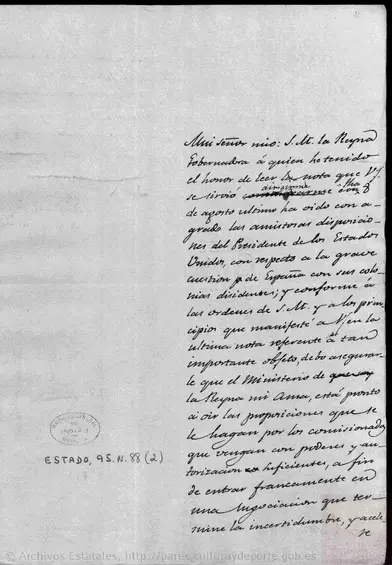 Mui señor mio: S. M. la Reyna
Gobernadora á quien he tenido
el honor de leer la nota que V.
se sirvió dirigirme con fha 8
de agosto ultimo ha oido con a-
grado las amistosas disposicio-
nes del Presidente de los Estados
Unidos, con respecto á la grave
cuestion de España con sus colo-
nias disidentes; y conforme á
las ordenes de S. M. y a los prin-
cipios que manifesté a V. en la
ultima nota referente á tan
importante objeto, debo asegurar-
le que el Ministerio de
la Reyna mi Ama, está pronto
á oir las proposiciones que se
le hagan por los comisionados
que vengan con poderes y au-
torizacion suficientes, a fin
de entrar francamente en
una negociacion que ter-
mine la incertidumbre, y acele
se
ESTADO, 95. N. 88 (2)
© Archivos Estatales, http://pares.culturaydeporte.gob.es